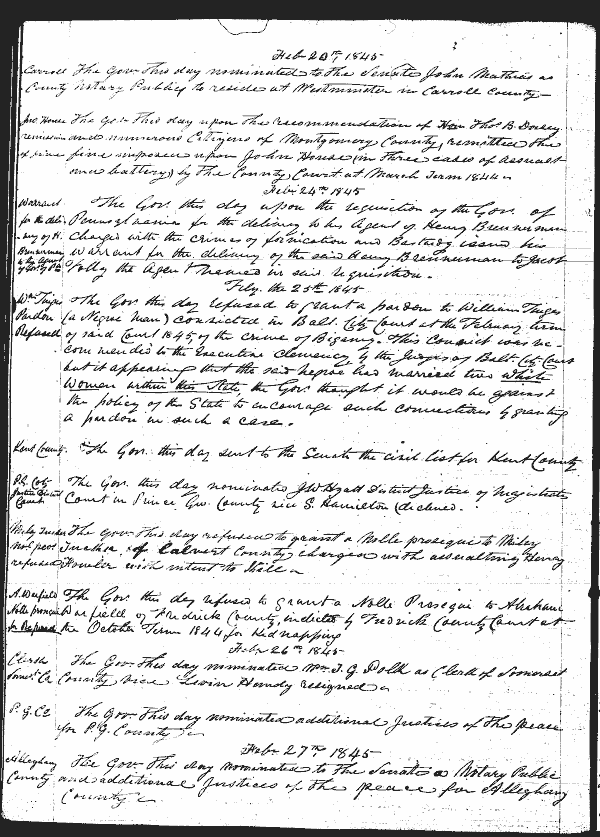 Feb 20th, 1845
Carroll The Gov. This day nominated to the Senate John Mathias as
County Notary Public to reside at Westminster in Carroll County
Jno House The Gov. This day upon the recommendation of Hon Thos B. Dorsey
remission and numerous Citizens of Montgomery County, remitted the
of fine fine imposed upon John House (in three cases of assault
and battery) by the County Court at March Term 1844
Feb. 24th 1845
Warrant The Gov. this day upon the requisition of the Gov. of
for the deli- Pennsylvania for the delivery to his Agent of Henry Brenneman
-very of H. Charged with the crimes of fornication and Bastardy issued his
Brenneman Warrant for the delivery of the said Henry Brenneman to Jacob
the Agent named in said requisition.
Feby. the 25th 1845
Wm The Gov. this day refused to grant a pardon to William
Pardon (a Negro Man) convicted in Balt. City Court at the February term
Refused of said Court 1845, of the crime of Bigamy. This Convict was re-
commended to the Executive clemency by the Judges of Balt. City Court
but it appearing that the said negroe had married two white
Women within this State, the Gov. thought it would be against
the policy of the State to encourage such connections by granting
a pardon in such a case.
Kent County. The Gov. this day sent to the Senate the civil list for Kent County
The Gov. this day nominated J W Hyatt District Justice of Magistrates
Court in Prince Geo. County vice S. Hamilton declined.
Miley Tucker The Gov. This day refused to grant a Nolle prosequi to Miley
Nol. pros. Tucker, of Calvert County charged with assaulting Henry
refused Fowler with intent to Kill
A. Warfield The Gov. this day refused to grant a Nolle Prosequi to Abraham
Nolle prosequi Warfield of Fredrick County, indicted by Fredrick County Court at
Refused the October Term 1844 for Kidnapping
Feb. 26th 1845
Clerk The Gov. This day nominated Wm. T. G. Polk as Clerk of Somerset
Somst. Co County vice Levin Handy resigned
P. G. Co The Gov. This day nominated additional Justices of the peace
for P. G. County
Feb. 27th, 1845
Alleghany The Gov. This day nominated to the Senate a Notary Public
County and additional Justices of the peace for Alleghany
County